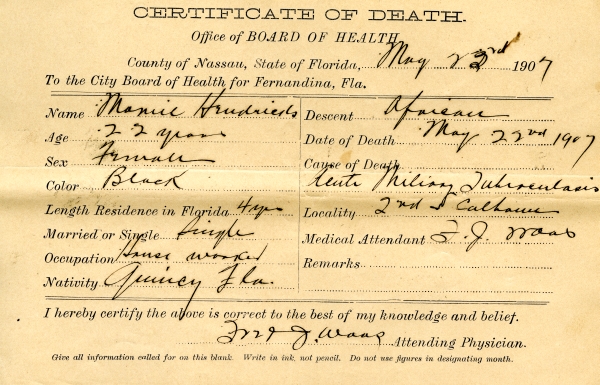 CERTIFICATE OF DEATH.
Office of BOARD OF HEALTH
County of Nassau, State of Florida, May 23rd 1907
To the City Board of Health for Fernandina, Fla.
Name Mamie Hendricks
Age 22 years
Sex Female
Color Black
Length Residence in Florida 4 yrs
Married or Single Single
Occupation House worker
Nativity Quincy Fla.
Descent African
Date of Death May 22nd 1907
Cause of Death
Acute Miliary Tuberculosis
Locality 2nd & Calhoun
Medical Attendant J. Waas
Remarks
I hereby certify the above is correct to the best of my knowledge and belief.
J. Waas Attending Physician.
Give all information called for on this blank. Write in ink, not pencil. Do not use figures in designating month.